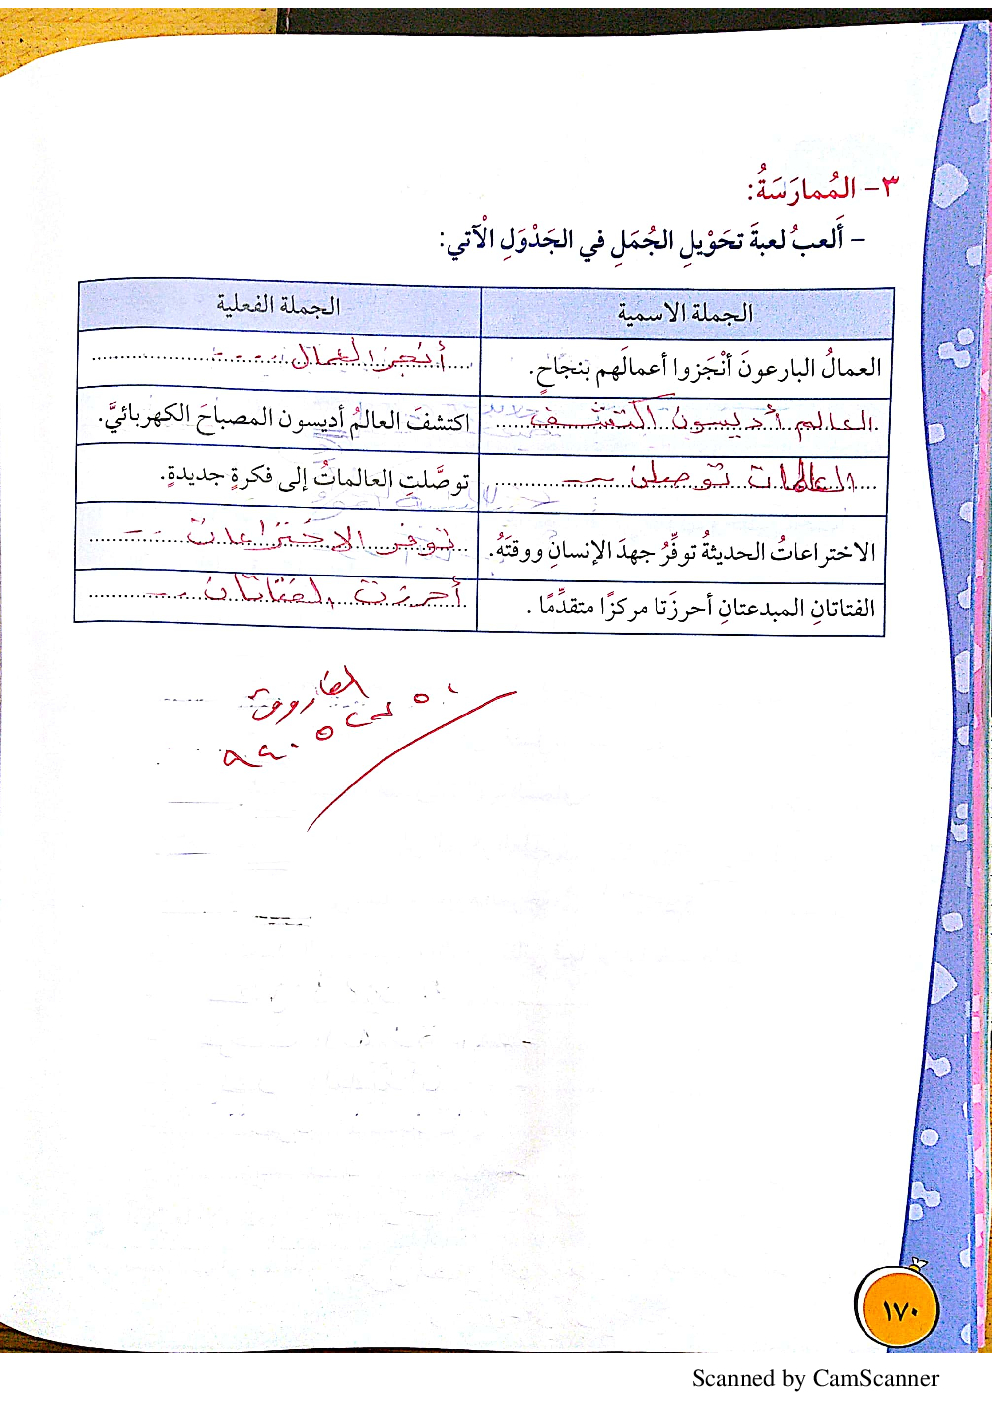 ٣- المُمارَسَةُ:
- أَلعبُ لعبةَ تحَوْيلِ الجُمَلِ في الجَدْوَلِ الْآتي:
الجملة الاسمية الجملة الفعلية
العمالُ البارعونَ أنْجَزوا أعمالَهم بنجاحٍ. أنجز العمال
العالم أديسون اكتشف اكتشفَ العالمُ أديسون المصباحَ الكهربائيَّ.
العالمات توصلن توصَّلتِ العالماتُ إلى فكرةٍ جديدةٍ.
الاختراعاتُ الحديثةُ توفِّرُ جهدَ الإنسانِ ووقتَهُ. توفر الاختراعات
الفتاتانِ المبدعتانِ أحرزَتا مركزًا متقدِّمًا . أحرزت الفتاتان
الفاروق
١٧٠
Scanned by CamScanner